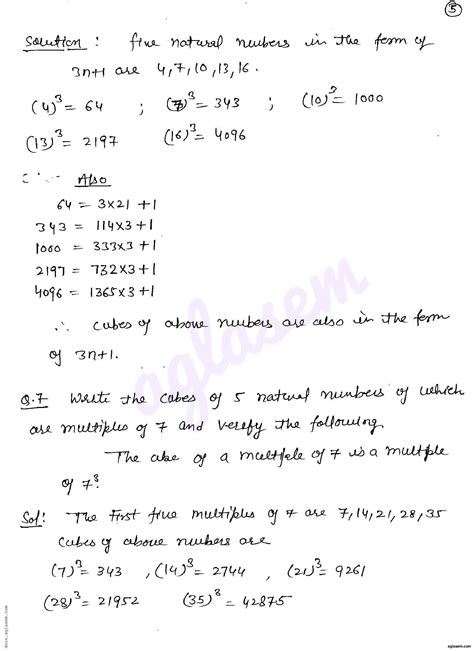 5
Solution : five natural numbers in the form of
3n+1 are 4,7,10,13,16.
(4)³ = 64 ; (7)³ = 343 ; (10)³ = 1000
(13)³ = 2197 (16)³ = 4096
Also
64 = 3×21 +1
343 = 114×3+1
1000 = 333×3+1
2197 = 732×3+1
4096 = 1365×3+1
∴ cubes of above numbers are also in the form
of 3n+1.
Q.7 Write the cubes of 5 natural numbers of which
are multiples of 7 and verify the following
The cube of a multiple of 7 is a multiple
of 7³.
Sol: The first five multiples of 7 are 7,14,21,28,35
cubes of above numbers are
(7)³ = 343 , (14)³ = 2744 , (21)³ = 9261
(28)³ = 21952 (35)³ = 42875
aglasem
docs.aglasem.com
aglasem.com